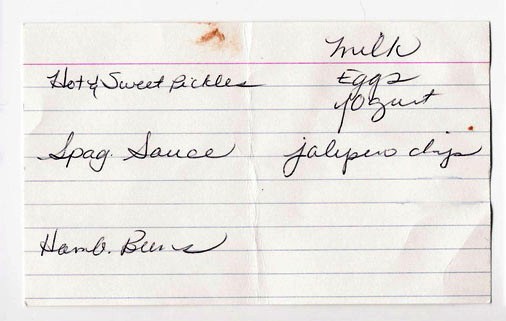 Milk
Hot & Sweet Pickles
Eggs
Yogurt
Spag. Sauce
jalipeno chips
Hamb. Buns